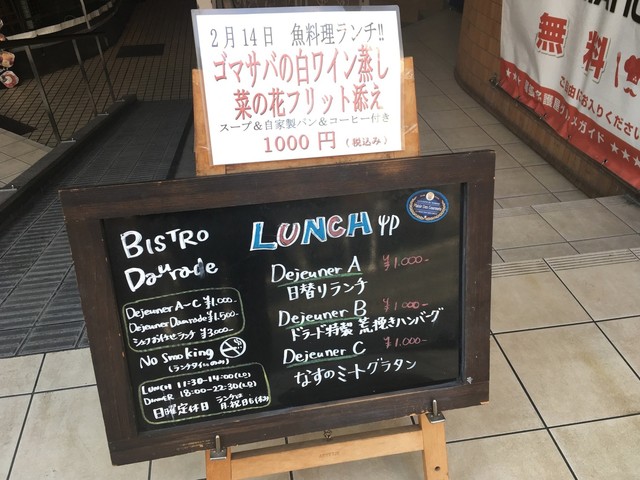 2月14日 魚料理ランチ!!
ゴマサバの白ワイン蒸し
菜の花フリット添え
スープ&自家製パン&コーヒー付き
1000円(税込み)
BISTRO
Daurade
Dejeuner A~C ¥1,000-
Dejeuner Daurade ¥1,500-
シェフおまかせランチ ¥3,000-
No Smoking
(ランチタイムのみ)
LUNCH 11:30-14:00(L.O)
DINNER 18:00-22:30(L.O)
日曜定休日 ランチは月・祝日も休み
LUNCH
Dejeuner A ¥1,000-
日替りランチ
Dejeuner B ¥1,000-
ドラード特製 荒挽きハンバーグ
Dejeuner C ¥1,000-
なすのミートグラタン
無料
ご自由にお入りください